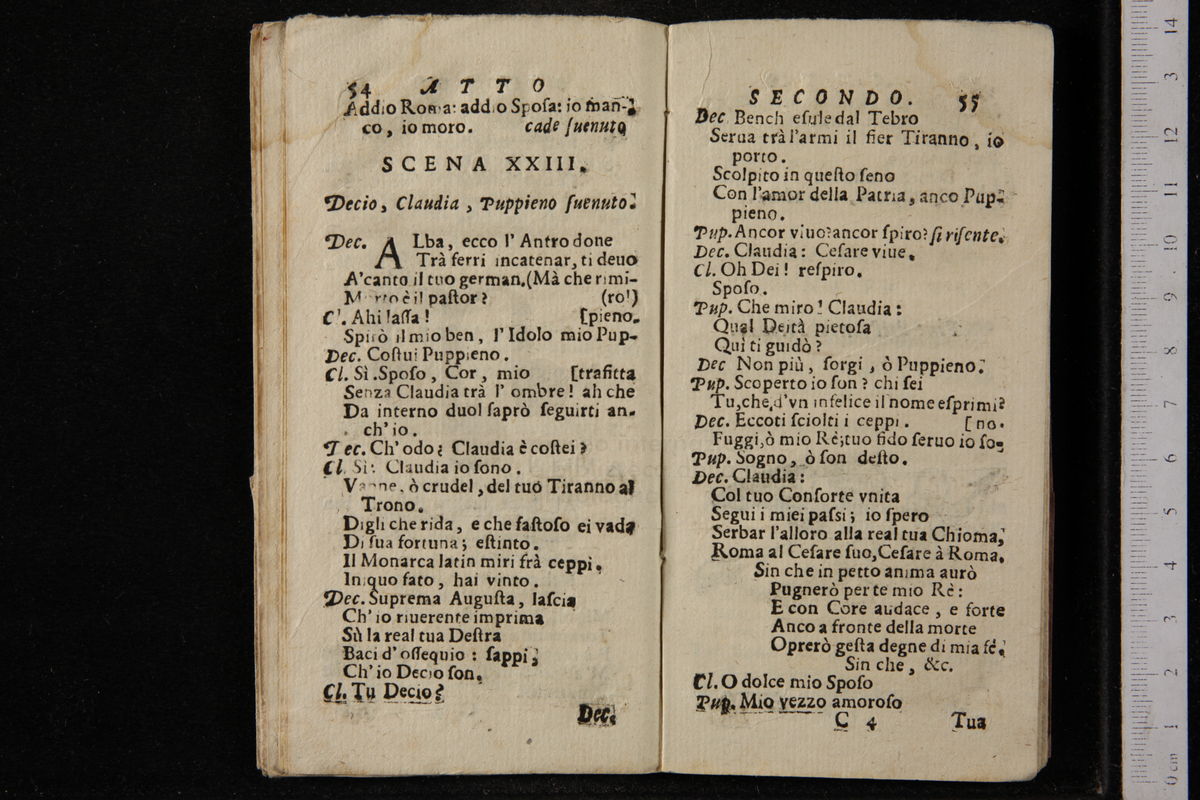 54 ATTO
Addio Roma: addio Sposa: io man-
co, io moro. cade suenuto
SCENA XXIII.
Decio, Claudia, Puppieno suenuto.
Dec. ALba, ecco l'Antro done
Trà ferri incatenar, ti deuo
A'canto il tuo german.(Mà che rimi-
Morto è il pastor? (ro!)
Cl. Ahi lassa! [pieno.
Spirò il mio ben, l'Idolo mio Pup-
Dec. Costui Puppieno.
Cl. Sì .Sposo, Cor, mio [trafitta
Senza Claudia trà l'ombre! ah che
Da interno duol saprò seguirti an-
ch'io.
Dec. Ch'odo? Claudia è costei?
Cl. Sì: Claudia io sono.
Vanne, ò crudel, del tuo Tiranno al
Trono.
Digli che rida, e che fastoso ei vada
Di sua fortuna; estinto.
Il Monarca latin miri frà ceppi.
Iniquo fato, hai vinto.
Dec. Suprema Augusta, lascia
Ch'io riuerente imprima
Sù la real tua Destra
Baci d'ossequio: sappi,
Ch'io Decio son.
Cl. Tu Decio?
Dec.
SECONDO. 55
Dec. Bench esule dal Tebro
Serua trà l'armi il fier Tiranno, io
porto.
Scolpito in questo seno
Con l'amor della Patria, anco Pup-
pieno.
Pup. Ancor viuo? ancor spiro? si risente.
Dec. Claudia: Cesare viue.
Cl. Oh Dei! respiro.
Sposo.
Pup. Che miro! Claudia:
Qual Deità pietosa
Qui ti guidò?
Dec Non più, sorgi, ò Puppieno.
Pup. Scoperto io son? chi sei
Tu, che d'vn infelice il nome esprimi?
Dec. Eccoti sciolti i ceppi. [no.
Fuggi, ò mio Rè; tuo fido seruo io so-
Pup. Sogno, ò son desto.
Dec. Claudia:
Col tuo Consorte vnita
Segui i miei passi; io spero
Serbar l'alloro alla real tua Chioma,
Roma al Cesare suo, Cesare à Roma.
Sin che in petto anima aurò
Pugnerò per te mio Rè:
E con Core audace, e forte
Anco a fronte della morte
Oprerò gesta degne di mia fè.
Sin che, &c.
Cl. O dolce mio Sposo
Pup. Mio vezzo amoroso
C 4 Tua